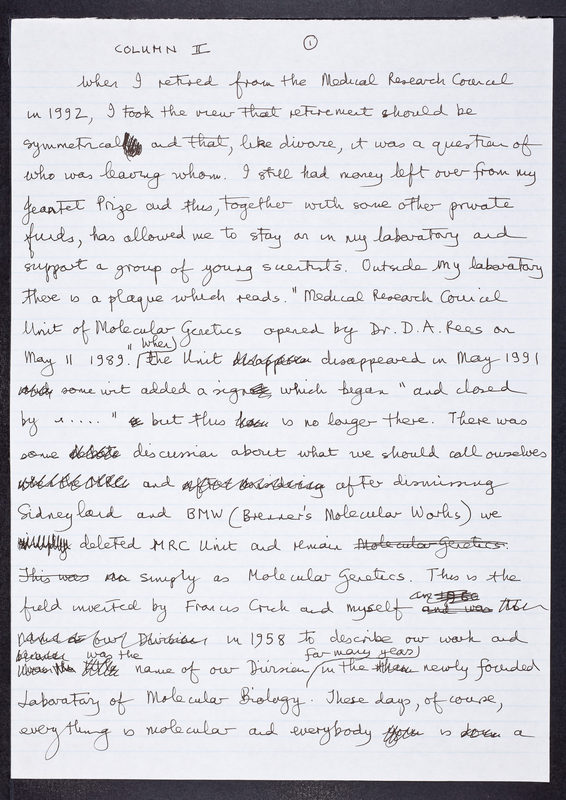 COLUMN II
1
When I retired from the Medical Research Council
in 1992, I took the view that retirement should be
symmetrical and that, like divorce, it was a question of
who was leaving whom. I still had money left over from my
Jeantet Prize and this, together with some other private
funds, has allowed me to stay on in my laboratory and
support a group of young scientists. Outside my laboratory
there is a plaque which reads. "Medical Research Council
Unit of Molecular Genetics opened by Dr. D.A. Rees on
May 11 1989." When the Unit disappeared in May 1991
some wit added a sign which began "and closed
by ....." but this is no longer there. There was
some discussion about what we should call ourselves
and after dismissing
Sidneyland and BMW (Brenner's Molecular Works) we
simply deleted MRC Unit and remain Molecular Genetics.
This was simply as Molecular Genetics. This is the
field invented by Francis Crick and myself and was
our Division in 1958 to describe our work and
was the name of our Division for many years in the newly founded
Laboratory of Molecular Biology. These days, of course,
everything is molecular and everybody is a